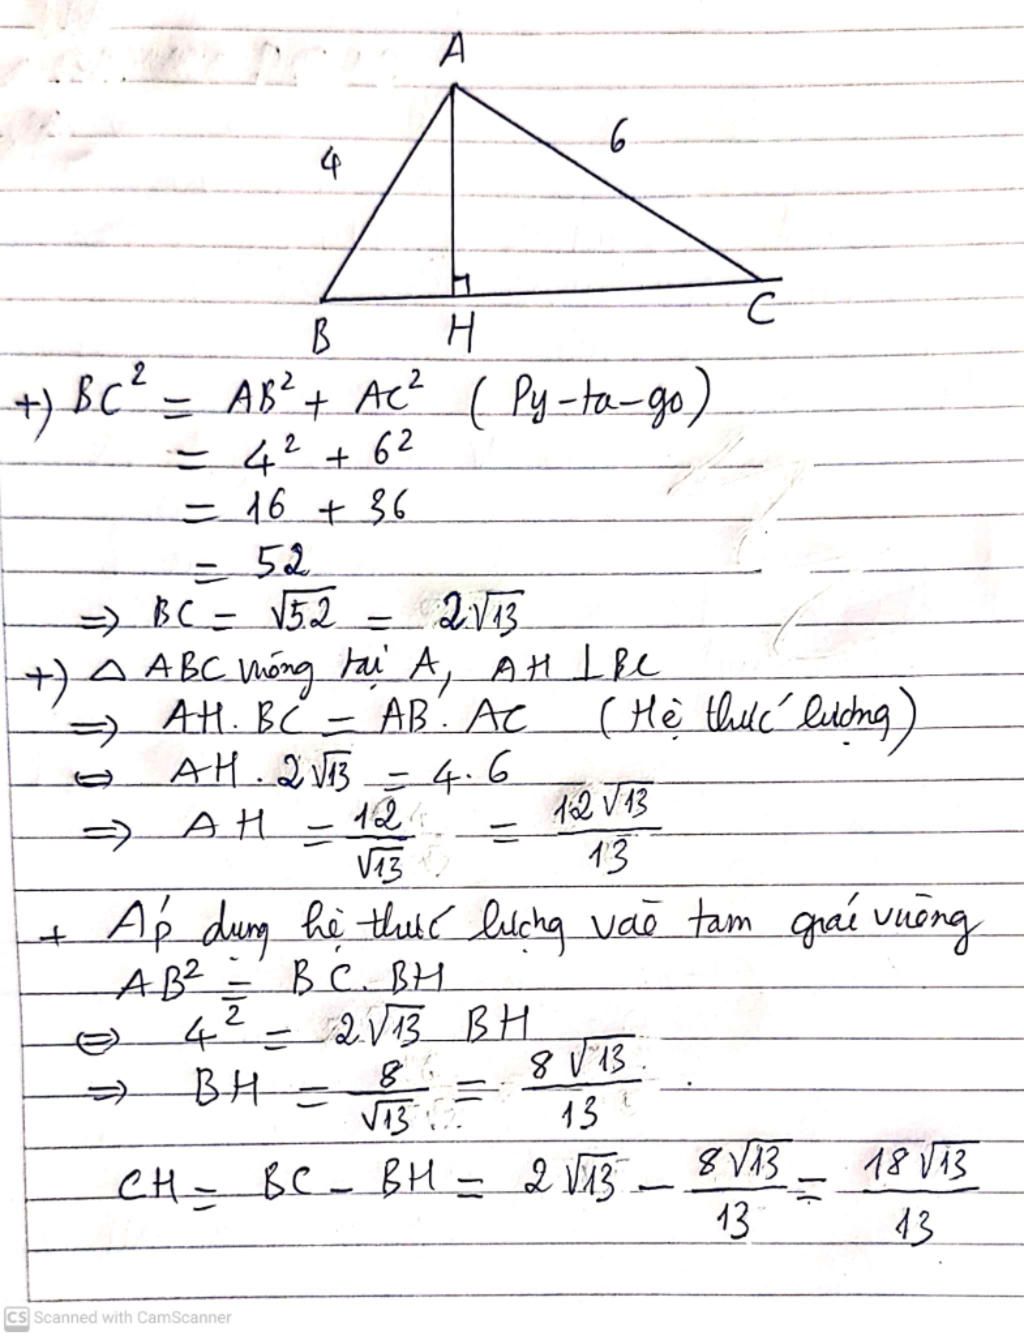 A
4
6
B
H
C
+) BC² = AB² + AC² ( Py-ta-go)
= 4² + 6²
= 16 + 36
= 52
=> BC = √52 = 2√13
+) △ ABC vuông tại A, AH ⊥ BC
=> AH. BC = AB. AC (Hệ thức lượng)
<=> AH. 2√13 = 4.6
=> AH = 12/√13 = 12√13/13
+ Áp dụng hệ thức lượng vào tam giác vuông
AB² = BC. BH
<=> 4² = 2√13 BH
=> BH = 8/√13 = 8√13/13
CH = BC - BH = 2√13 - 8√13/13 = 18√13/13
CS Scanned with CamScanner